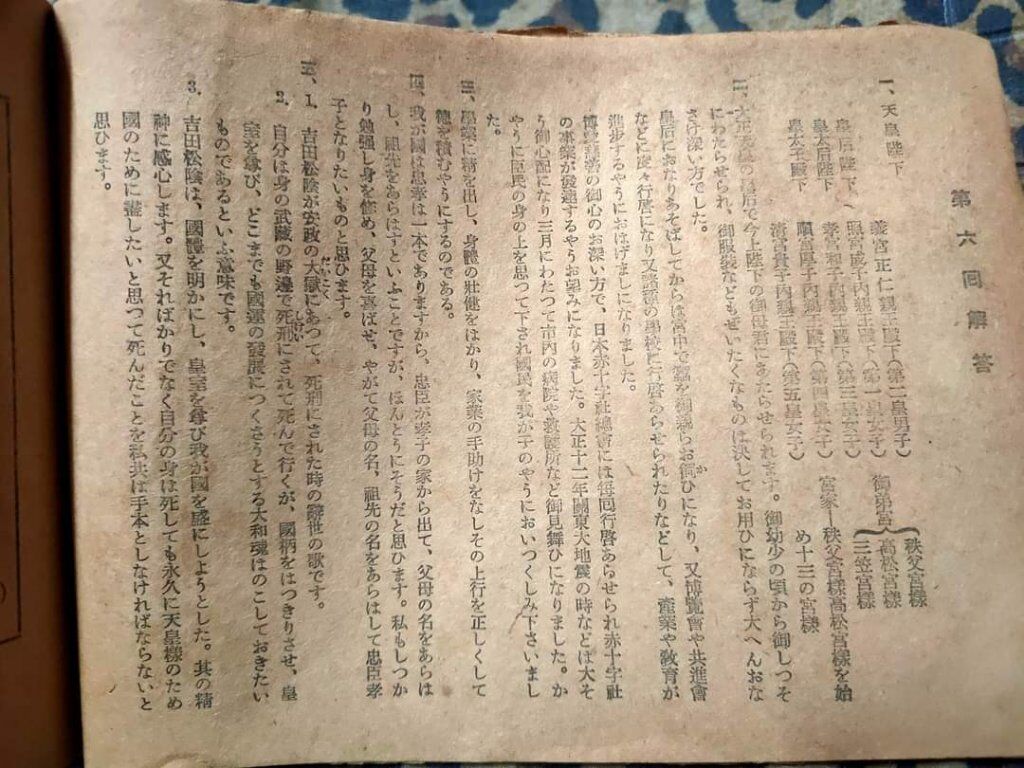 第六回解答
一、天皇陛下
皇后陛下
皇太后陛下
皇太子殿下
義宮正仁親王殿下(第二皇男子)
照宮成子內親王殿下(第一皇女子)
孝宮和子內親王殿下(第三皇女子)
順宮厚子內親王殿下(第四皇女子)
淸宮貴子內親王殿下(第五皇女子)
御弟宮
秩父宮樣
高松宮樣
三笠宮樣
宮家―秩父宮樣高松宮樣を始
め十三の宮樣
二、大正天皇の皇后で今上陛下の御母君にあたらせられます。御幼少の頃から御しつそ
にわたらせられ、御服裝などもぜいたくなものは決してお用ひにならず大へんおな
さけ深い方でした。
皇后におなりあそばしてからは宮中で蠶を御養らお飼ひになり、又博覽會や共進會
などに度々行啓になり又諸種の學校に行啓あらせられたりなどして、產業や敎育が
進步するやうにおはげましになりました。
博愛慈善の御心のお深い方で、日本赤十字社總會には每回行啓あらせられ赤十字社
の事業が發達するやうお望みになりました。大正十二年關東大地震の時などは大そ
う御心配になり三月にわたつて市內の病院や救護所など御見舞ひになりました。か
やうに臣民の身の上を思つて下され國民を我が子のやうにおいつくしみ下さいまし
た。
三、學業に精を出し、身體の壯健をはかり、家業の手助けをなしその上行を正しくして
德を積むやうにするのである。
四、我が國は忠孝は一本でありますから、忠臣が孝子の家から出て、父母の名をあらは
し、祖先をあらはすといふことですが、ほんとうにそうだと思ひます。私もしつか
り勉强し身を修め、父母を喜ばせ、やがて父母の名、祖先の名をあらはして忠臣孝
子となりたいものと思ひます。
五、1. 吉田松陰が安政の大獄にあつて、死刑にされた時の辭世の歌です。
2. 自分は身の武藏の野邊で死刑にされて死んで行くが、國柄をはつきりさせ、皇
室を尊び、どこまでも國運の發展につくさうとする大和魂はのこしておきたい
ものであるといふ意味です。
3. 吉田松陰は、國體を明かにし、皇室を尊び我が國を盛にしようとした。其の精
神に感心します。又そればかりでなく自分の身は死しても永久に天皇樣のため
國のために盡したいと思つて死んだことを私共は手本としなければならないと
思ひます。